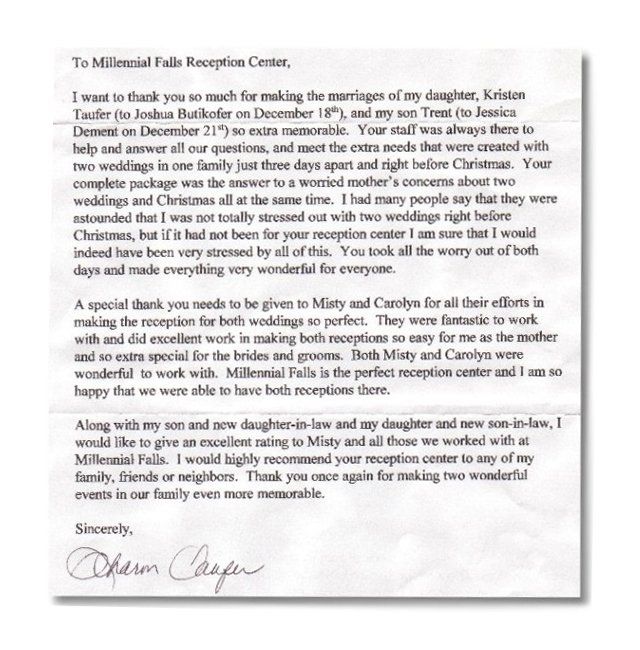 To Millennial Falls Reception Center,
I want to thank you so much for making the marriages of my daughter, Kristen
Taufer (to Joshua Butikofer on December 18th), and my son Trent (to Jessica
Dement on December 21st) so extra memorable. Your staff was always there to
help and answer all our questions, and meet the extra needs that were created with
two weddings in one family just three days apart and right before Christmas. Your
complete package was the answer to a worried mother's concerns about two
weddings and Christmas all at the same time. I had many people say that they were
astounded that I was not totally stressed out with two weddings right before
Christmas, but if it had not been for your reception center I am sure that I would
indeed have been very stressed by all of this. You took all the worry out of both
days and made everything very wonderful for everyone.
A special thank you needs to be given to Misty and Carolyn for all their efforts in
making the reception for both weddings so perfect. They were fantastic to work
with and did excellent work in making both receptions so easy for me as the mother
and so extra special for the brides and grooms. Both Misty and Carolyn were
wonderful to work with. Millennial Falls is the perfect reception center and I am so
happy that we were able to have both receptions there.
Along with my son and new daughter-in-law and my daughter and new son-in-law, I
would like to give an excellent rating to Misty and all those we worked with at
Millennial Falls. I would highly recommend your reception center to any of my
family, friends or neighbors. Thank you once again for making two wonderful
events in our family even more memorable.
Sincerely,
Sharon Taufer